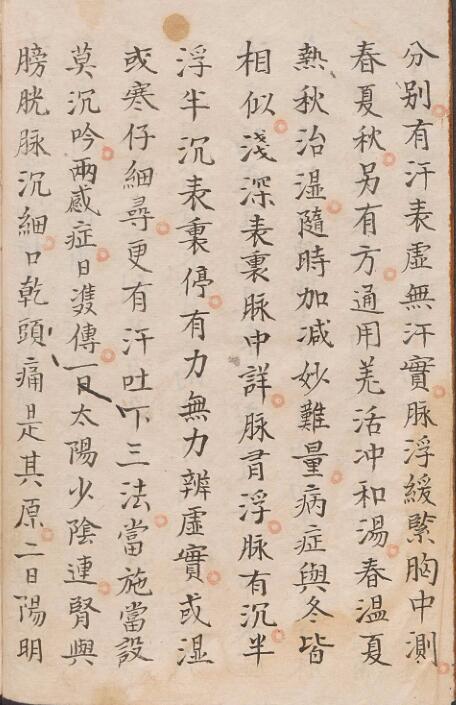 分别有汗表虛無汗實脉浮緩緊胸中測
春夏秋另有方通用羌活冲和湯春温夏
熱秋治湿隨時加减妙難量病症與冬皆
相似淺深表裏脉中詳脉有浮脉有沉半
浮半沉表裏停有力無力辨虛實或湿
或寒仔細尋更有汗吐下三法當施當設
莫沉吟兩感症日雙傳一日太陽少陰連腎與
膀胱脉沉細口乾頭痛是其原二日陽明